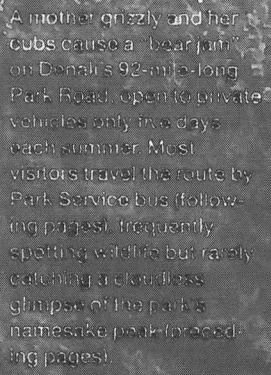 A mother grizzly and her
cubs cause a "bear jam"
on Denali's 92-mile-long
Park Road, open to private
vehicles only five days
each summer. Most
visitors travel the route by
Park Service bus (follow-
ing pages), frequently
spotting wildlife but rarely
catching a cloudless
glimpse of the park's
namesake peak (preced-
ing pages).